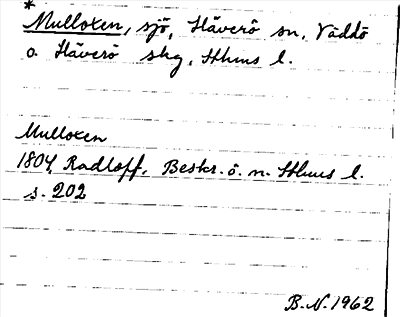 *
Mulloxen, sjö, Häverö sn, Väddö
o. Häverö skg, Sthms l.
Mulloxen
1804, Radloff, Beskr. ö. n. Sthms l.
s. 202
B.N. 1962